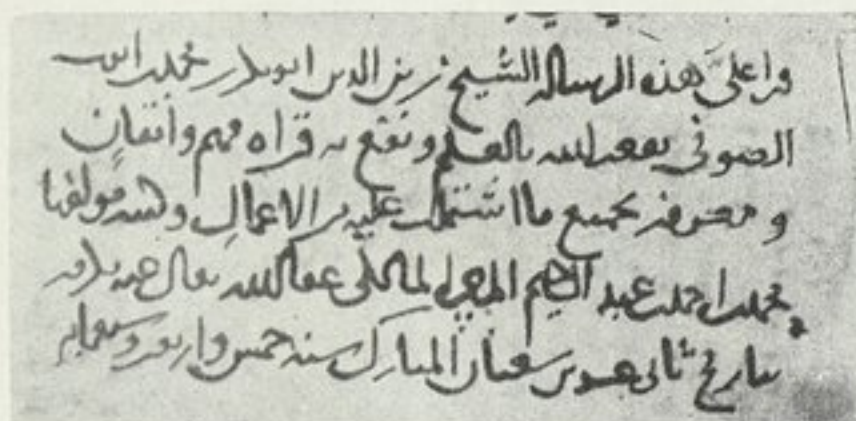 قرا على هذه الرسالة الشيخ زين الدين ابو بكر بن محمد بن
الصوفي نفعه الله بالعلم ونفع به قراه فهم واتقان
ومعرفه بجميع ما اشتملت عليه من الاعمال وكتبه مولفها
محمد بن احمد بن عبد الرحيم المالكي عفا الله تعالى عنه
بتاريخ ثاني عشرين شعبان المبارك سنة خمس واربعين وسبعمايه